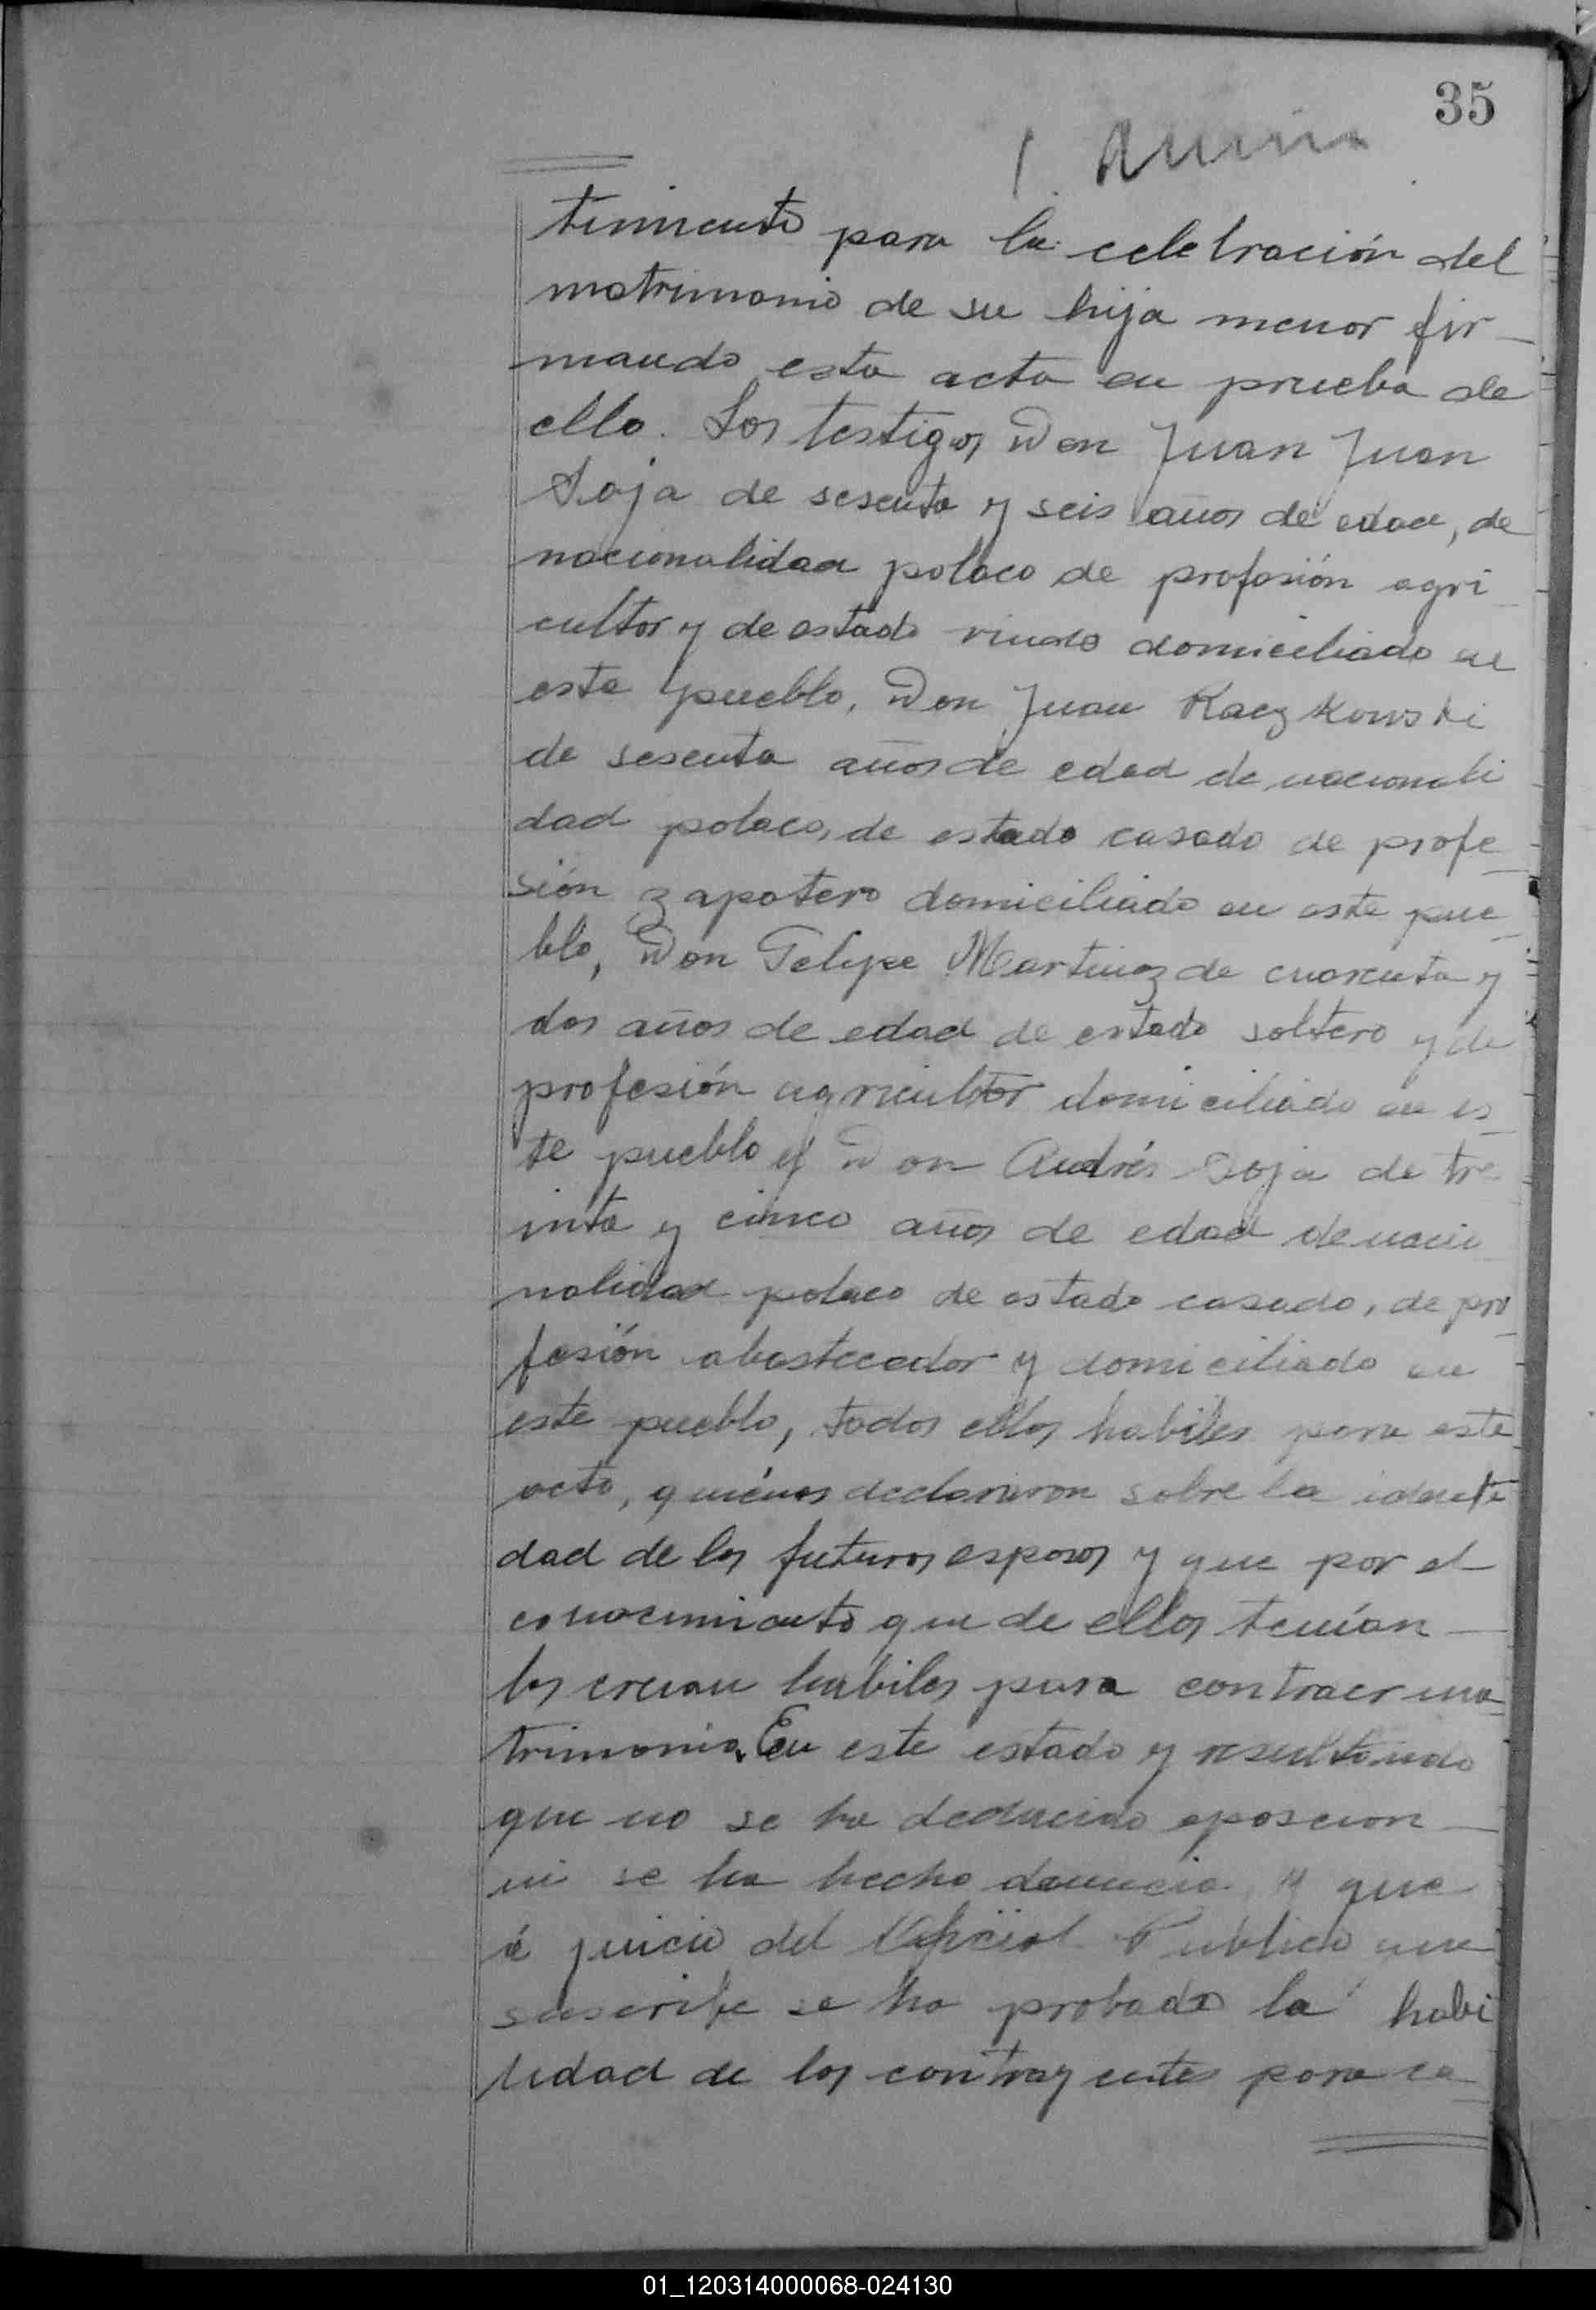 35
timiento para la celebración del
matrimonio de su hija menor fir-
mando esta acta en prueba de
ello. Los testigos Don Juan Juan
Soja de sesenta y seis años de edad, de
nacionalidad polaco de profesión agri
cultor y de estado viudo domiciliado en
este pueblo, Don Juan Kaczkowski
de sesenta años de edad de nacionali
dad polaco, de estado casado de profe-
sión zapatero domiciliado en este pue-
blo, Don Felipe Martinez de cuarenta y
dos años de edad de estado soltero y de
profesión agricultor domiciliado en es-
te pueblo y Don Andrés Soja de tre
inta y cinco años de edad de nacio
nalidad polaco de estado casado, de pro-
fesión abastecedor y domiciliado en
este pueblo, todos ellos habiles para este
acto, quiénes declararon sobre la identi
dad de los futuros esposos y que por el
conocimiento que de ellos tenían-
los creian habiles para contraer ma-
trimonio. En este estado y resultando
que no se ha deducido oposcion-
ni se ha hecho denuncia y que
á juicio del Oficial Público que
suscribe se ha probado la habi
lidad de los contrayentes para ca-
01_120314000068-024130